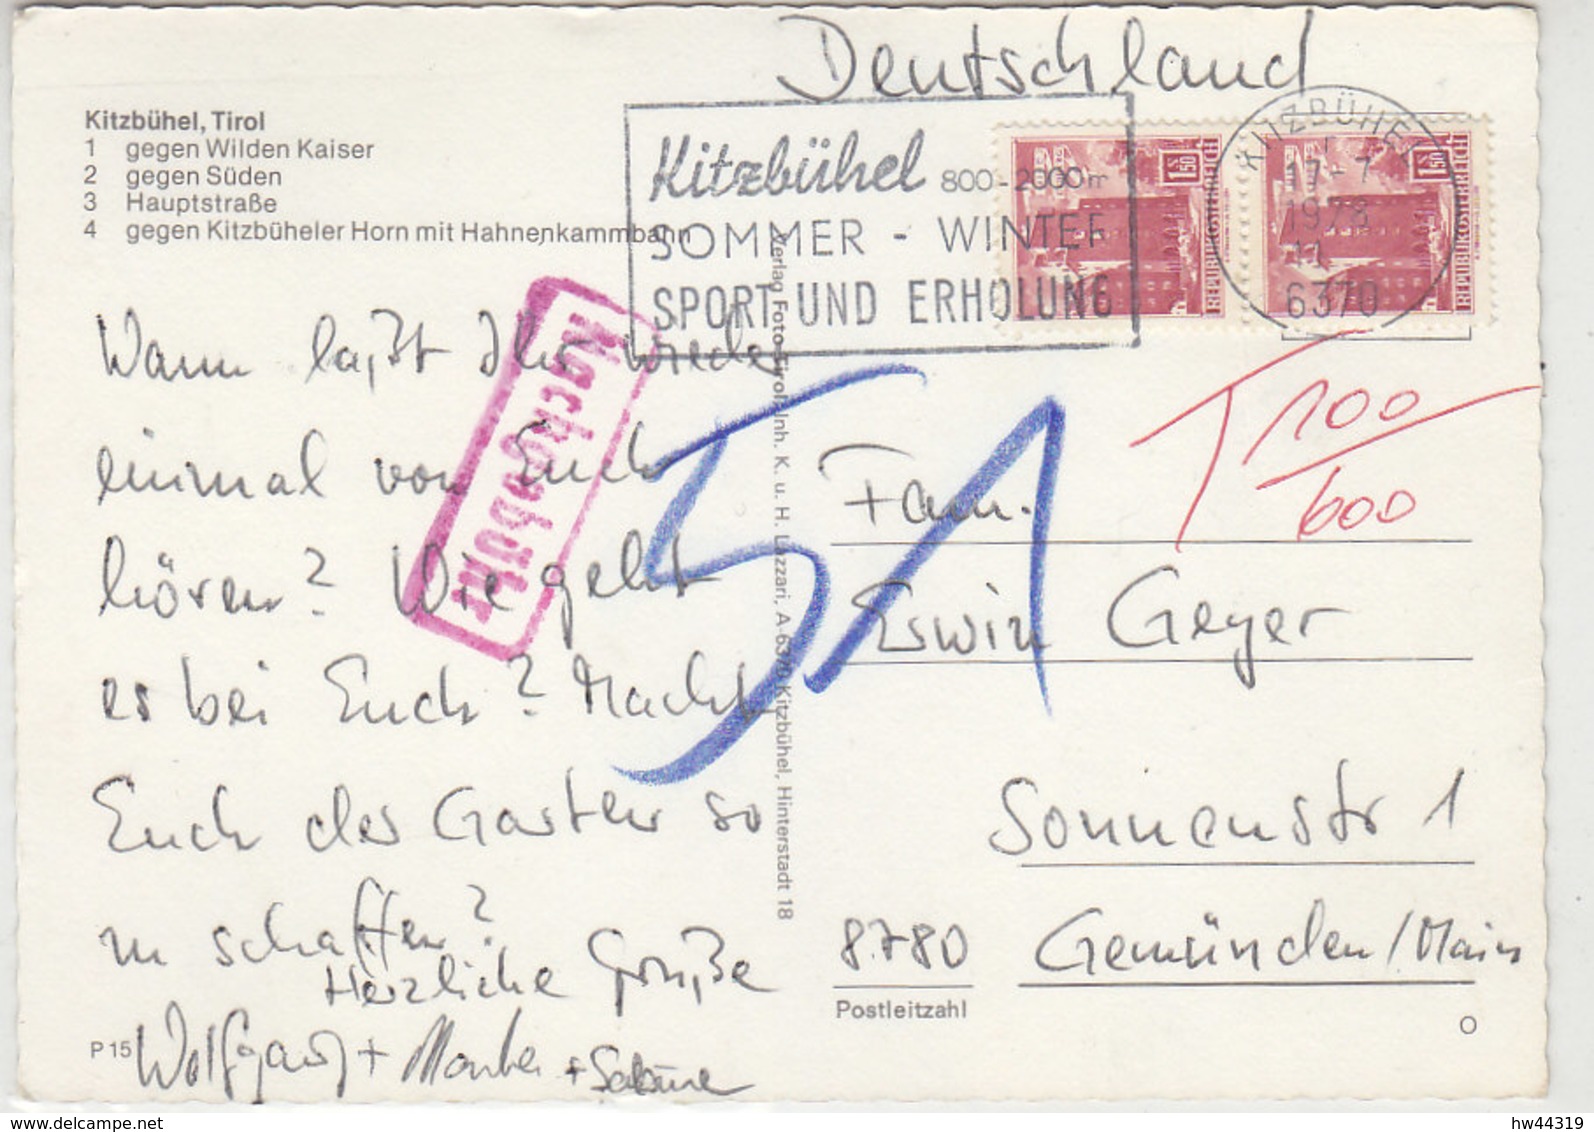 Deutschland
Kitzbühel, Tirol
1 gegen Wilden Kaiser
2 gegen Süden
3 Hauptstraße
4 gegen Kitzbüheler Horn mit Hahnenkammbahn
Kitzbühel 800-2000m
SOMMER - WINTER
SPORT UND ERHOLUNG
1.50
REPUBLIK ÖSTERREICH
1.50
REPUBLIK ÖSTERREICH
KITZBÜHEL
17.-7
1978
11
6370
Nachgebühr
Wann laßt Ihr wieder
einmal von Euch
hören? Wie geht
es bei Euch? Macht
Euch der Garten so
zu schaffen?
Herzliche Grüße
Wolfgang + + Sabine
P 15
Verlag Foto-Tirol, Inh. K. u. H. Lazzari, A-6370 Kitzbühel, Hinterstadt 18
51
T 100
600
Fam.
Erwin Geyer
Sonnenstr 1
8780 Gemünden/Main
Postleitzahl
O
www.delcampe.net
hw44319